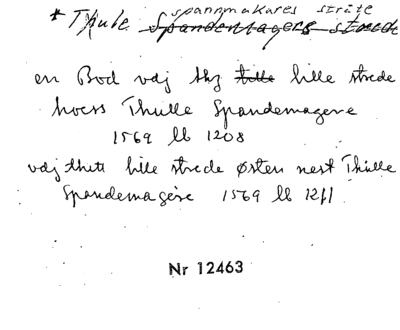 * Thule spannmakares stræte
Spandemagers stræde
en Bod vdj thz tille lille strede
hoess Thulle Spandemagere
1569 lb 1208
vdj thett lille strede østen nest Thulle
Spandemagere 1569 lb 1211
Nr 12463